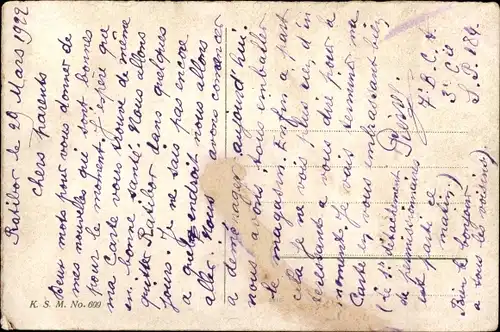 Ratibor le 29 Mars 1922
Chers parents
Deux mots pour vous donner de
mes nouvelles qui sont bonnes
pour le moment. J'espère que
ma carte vous trouve de même
en bonne santé. Nous allons
quitter Ratibor dans quelques
jours. Je ne sais pas encore
a quel endroit nous allons
aller. Nous avons comencer
a demenager aujourd'hui.
nous avons tous emballer
le magasin. Enfin a part
cela je ne vois plus rien d'in
teressant a vous dire pour le
moment. Je vais terminer ma
Carte en vous embrassant bien
(le 1er détachement
de permissionnaires
est parti ce
matin.)
7e B.C.A.
3e Cie
S.P. 189.
Bien le bonjour
aux voisins.)
K. S. M. No. 600